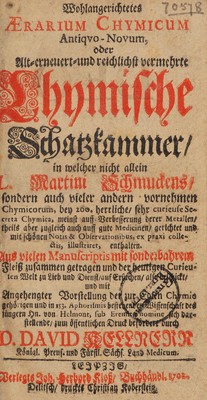 70578
Wohlangerichtetes
ÆRARIUM CHYMICUM
Antiqvo-Novum,
oder
Alt-erneuert-und reichlichst vermehrte
Chymische
Schatzkammer/
in welcher nicht allein
L. Martini Schmuckens/
sondern auch vieler andern vornehmen
Chymicorum, bey 200. herrliche/ sehr curieuse Se-
creta Chymica, meist auff Verbesserung derer Metallen/
theils aber zugleich auch auff gute Medicinen/ gerichtet und
mit schönen Notis & Observationibus, ex praxi colle-
ctis, illustriret, enthalten.
Aus vielen Manuscriptis mit sonderbahrem
Fleiß zusammen getragen und der heutigen Curieu-
sen Welt zu Lieb und Dienst/
und mit
Angehengter Vorstellung der Chymie
gehörigen
jüngern Hn. von Helmont, sub
stellende/ zum öffentlichen Druck befördert durch
D. DAVID KELLNERN
Königl. Preuß. und Fürstl. Sächs. Land Medicum.
LEIPZIG/
Verlegts Joh. Herbord Kloß/ Buchhändl. 1702.
Delitsch/ druckts Christian Koberstein.